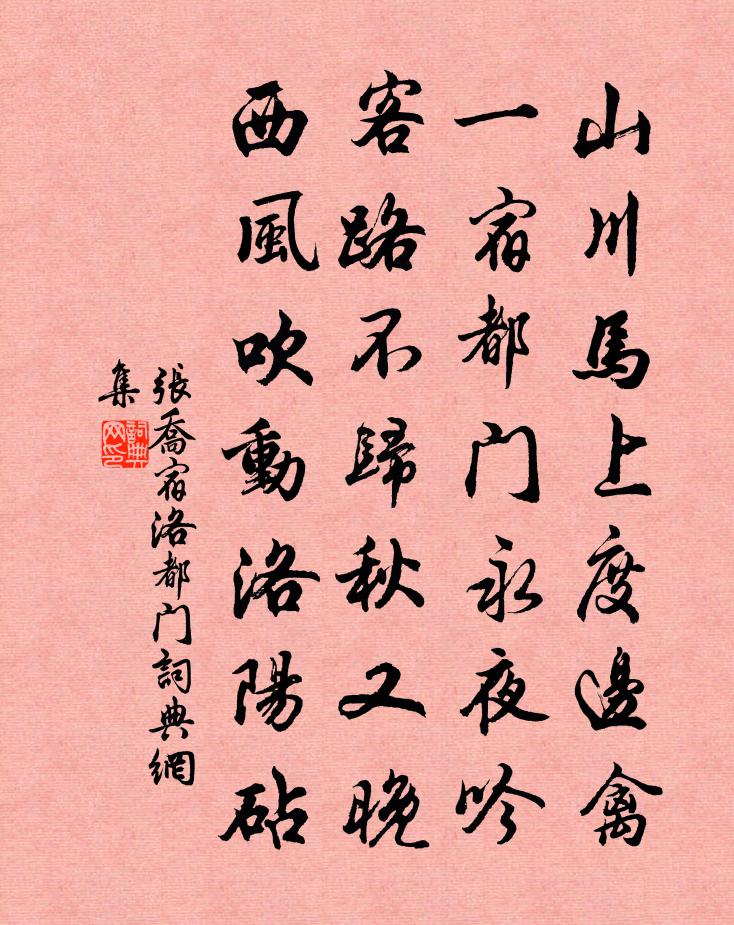 山川馬上度邊禽
一宿都门永夜吟
客路不歸秋又晚
西風吹動洛陽砧
張喬宿洛都门詞典網
集
詞典
网印